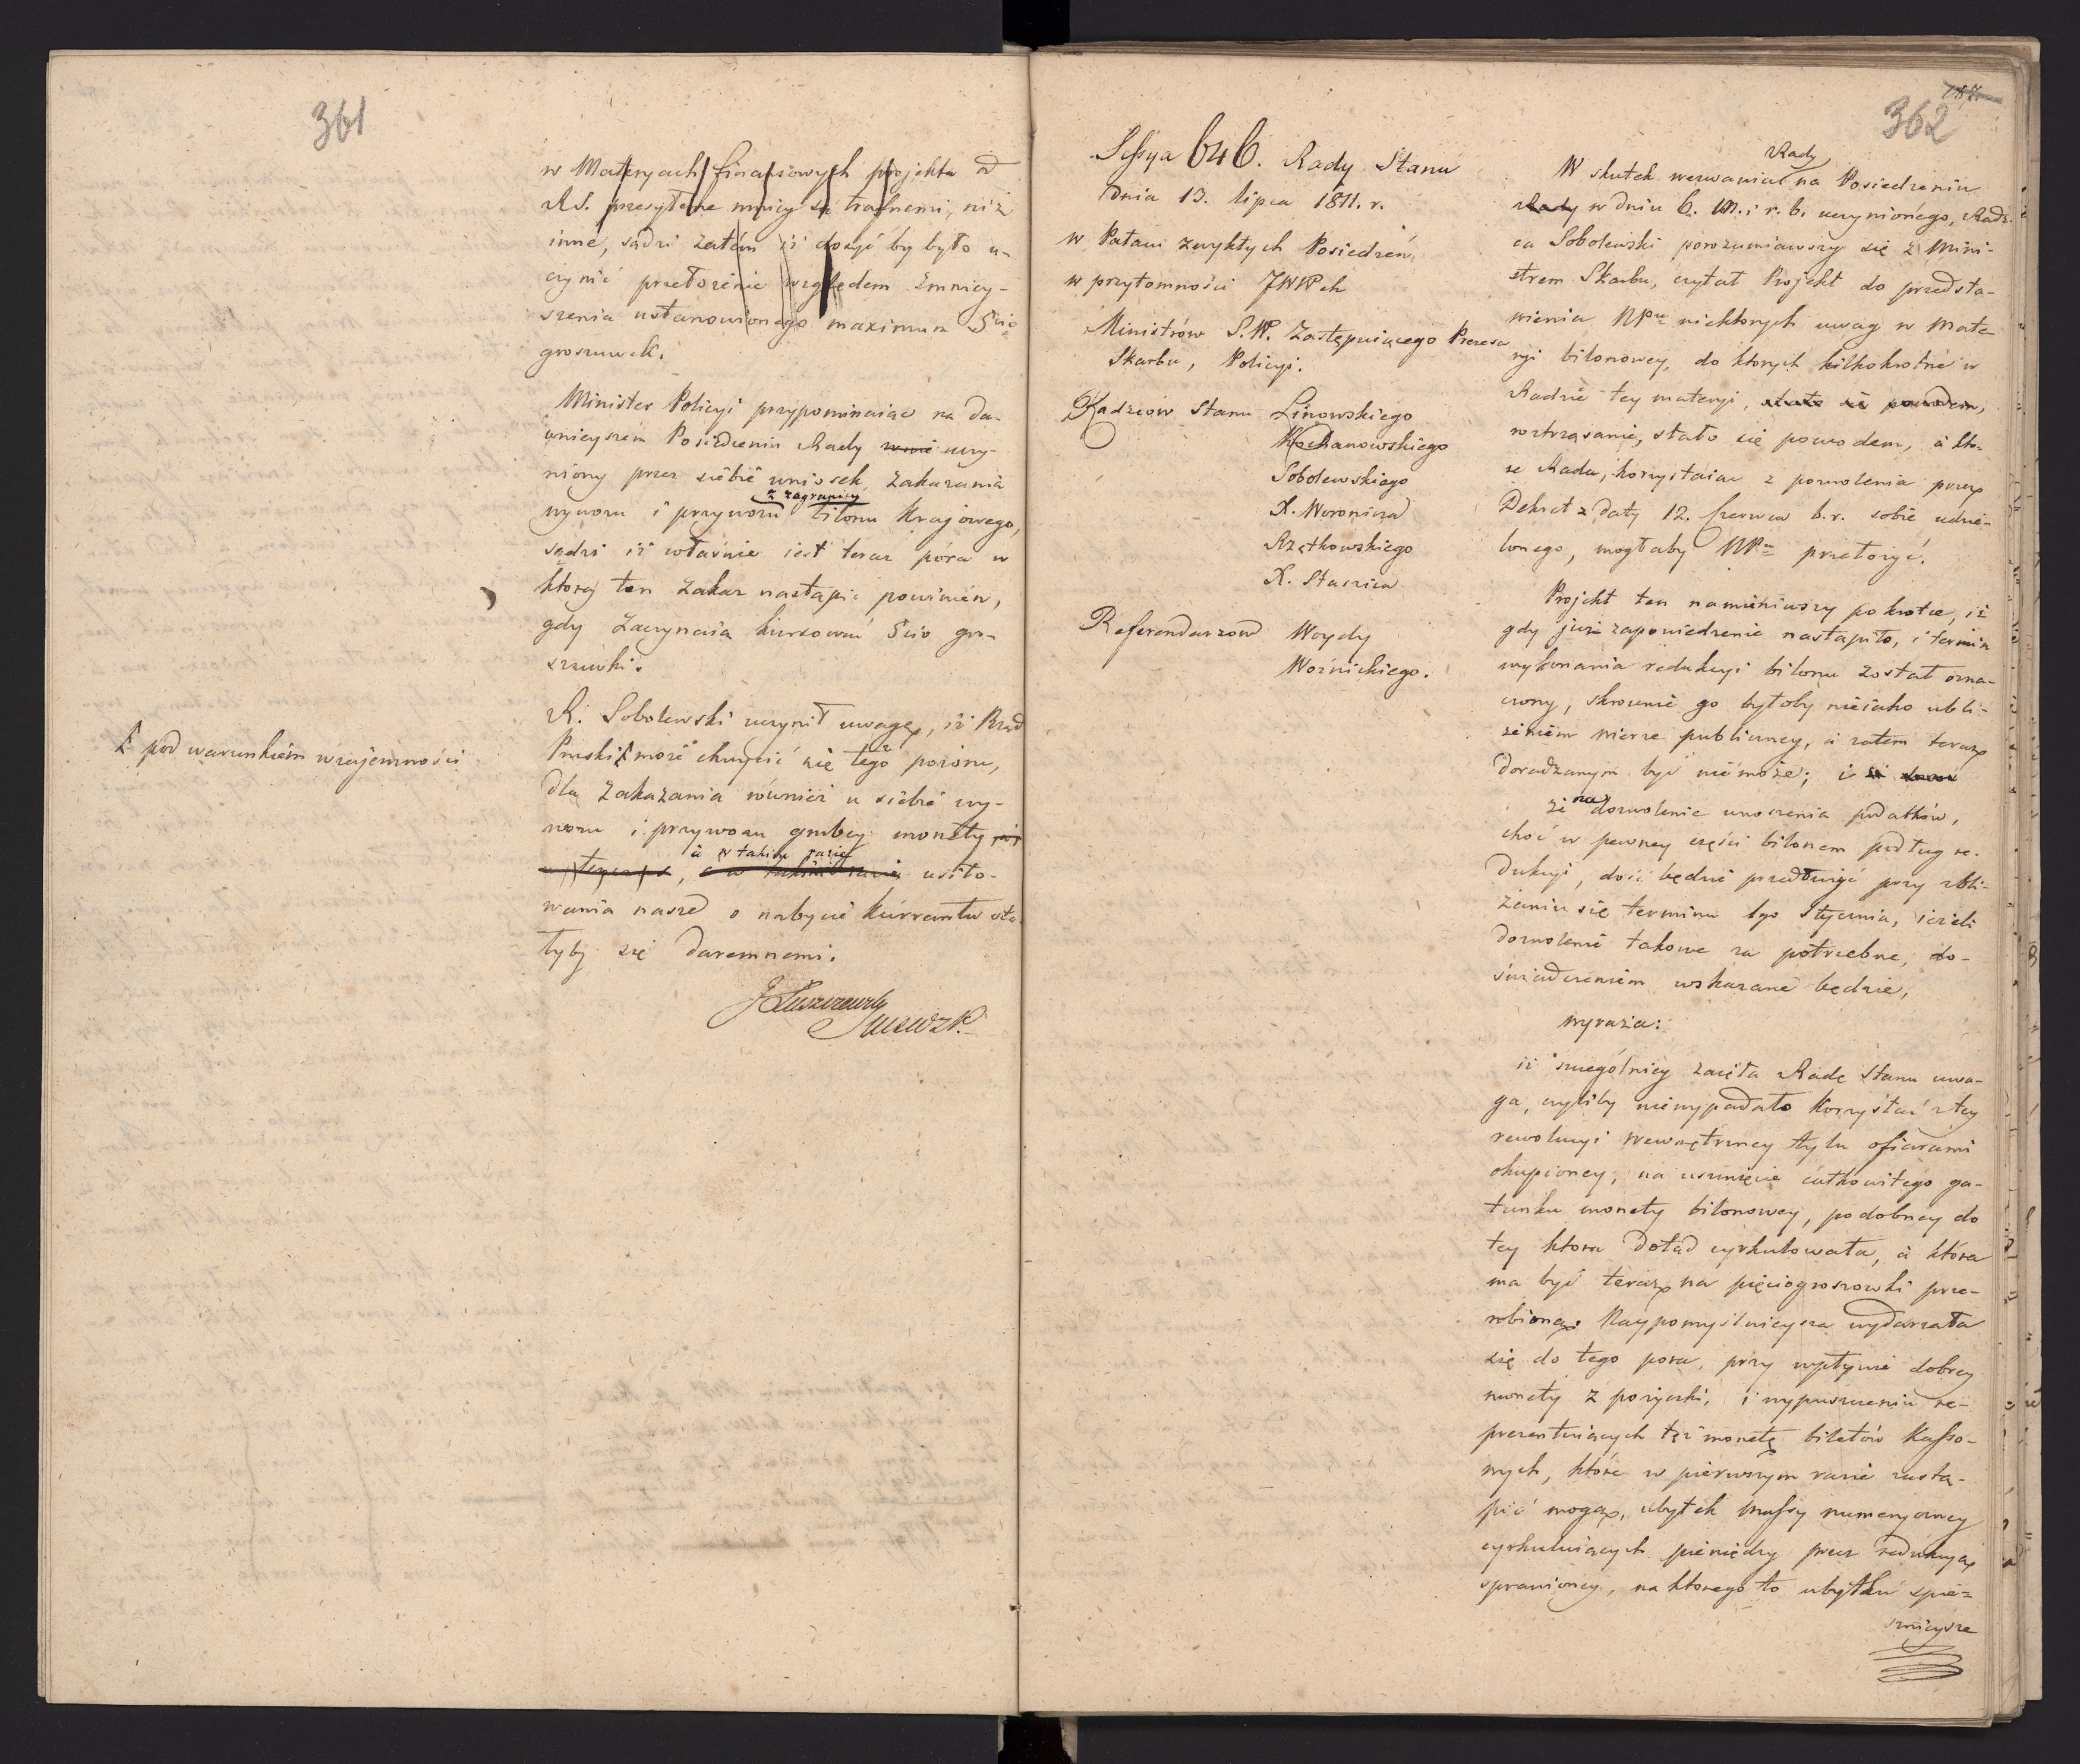 361
w Materyach finansowych projekta od
RS. przesyłane mniey są trafnemi, niż
inne, sądzi zatém iż dosyć by było u-
czynić przełożenie względem zmniey-
szenia ustanowionego maximum 5cio
groszówek.
Minister Policyi przypominaiąc na da-
wnieyszem Posiedzeniu Rady uczy-
niony przez siebie wniosek, zakazania
z zagranicy
wywozu i przywozu bilonu Krajowego,
sądzi iż właśnie iest teraz póra w
którey ten zakaz nastąpić powinién,
gdy zaczynaia kursować 5cio gro-
szówki.
R. Sobolewski uczynił uwagę, iż Rząd
Ł pod warunkiém wzajemności
Pruski Ł może chwycić się tegoż pozoru,
dla zakazania również u siebie wy-
wozu i przywozu grubey monety
à w takim razie
usiło-
wania nasze o nabycie kurrantu sta-
łyby się daremnemi.
J Łuszczewski
362
Sessya 646. Rady Stanu
Dnia 13. lipca 1811. r.
w Pałacu zwykłych Posiedzeń,
w przytomności JWWch
Ministrów S.W. Zastępuiącego Prezesa
Skarbu, Policyi.
Radzców Stanu Linowskiego
Kochanowskiego
Sobolewskiego
X. Woronicza
Rzętkowskiego
X. Staszica
Referendarzów Woydy
Woźnickiego.
Rady
W skutek wezwania na Posiedzeniu
Rady w dniu 6. M. i r. b. uczynionego, Radz-
ca Sobolewski porozumiawszy się z Mini-
strem Skarbu, czytał Projekt do przedsta-
wienia NPu niektorych uwag w mate-
ryi bilonowey, do ktorych kilkokrotne w
Radzie tey materyi, stało się powodem,
roztrząsanie, stało się powodem, à kto-
re Rada, korzystaiąc z pozwolenia przez
Dekret z daty 12. Czerwca b.r. sobie udzie-
lonego, mogłaby NPu przełożyć.
Projekt ten namieniwszy pokrotce, iż
gdy już zapowiedzenie nastąpiło, i termin
wykonania redukcyi bilonu został ozna-
czony, skrocenie go byłoby nieiako ubli-
żeniém wierze publiczney, à zatem teraz
doradzanym być niemoże; i
że na dozwolenie wnoszenia podatków,
choć w pewney części bilonem podług re-
dukcyi, dość będzie przedłużyć przy zbli-
żeniu się terminu 1go Stycznia, ieżeli
dozwolenie takowe za potrzebne, do-
świadczeniem wskazane będzie,
wyraża:
iż szczegolniey zaięła Radę Stanu uwa-
ga, czyliby niewypadało korzystać z tey
rewolucyi wewnętrzney tylu ofiarami
okupioney, na usunięcie całkowitego ga-
tunku monety bilonowey, podobney do
tey ktora dotąd cyrkulowała, à która
ma być teraz na pięciogroszowki prze-
robioną. Naypomyślnieysza wydarzała
się do tego pora, przy wpływie dobrey
monety z pożyczki, i wypuszczeniu re-
prezentuiących też monetę biletów Kasso-
wych, które w pierwszym razie zastą-
pić mogą, ubytek massy numeryczney
cyrkuluiących pieniędzy przez redukcyą
sprawioney, na ktorego to ubytku spie-
sznieysze